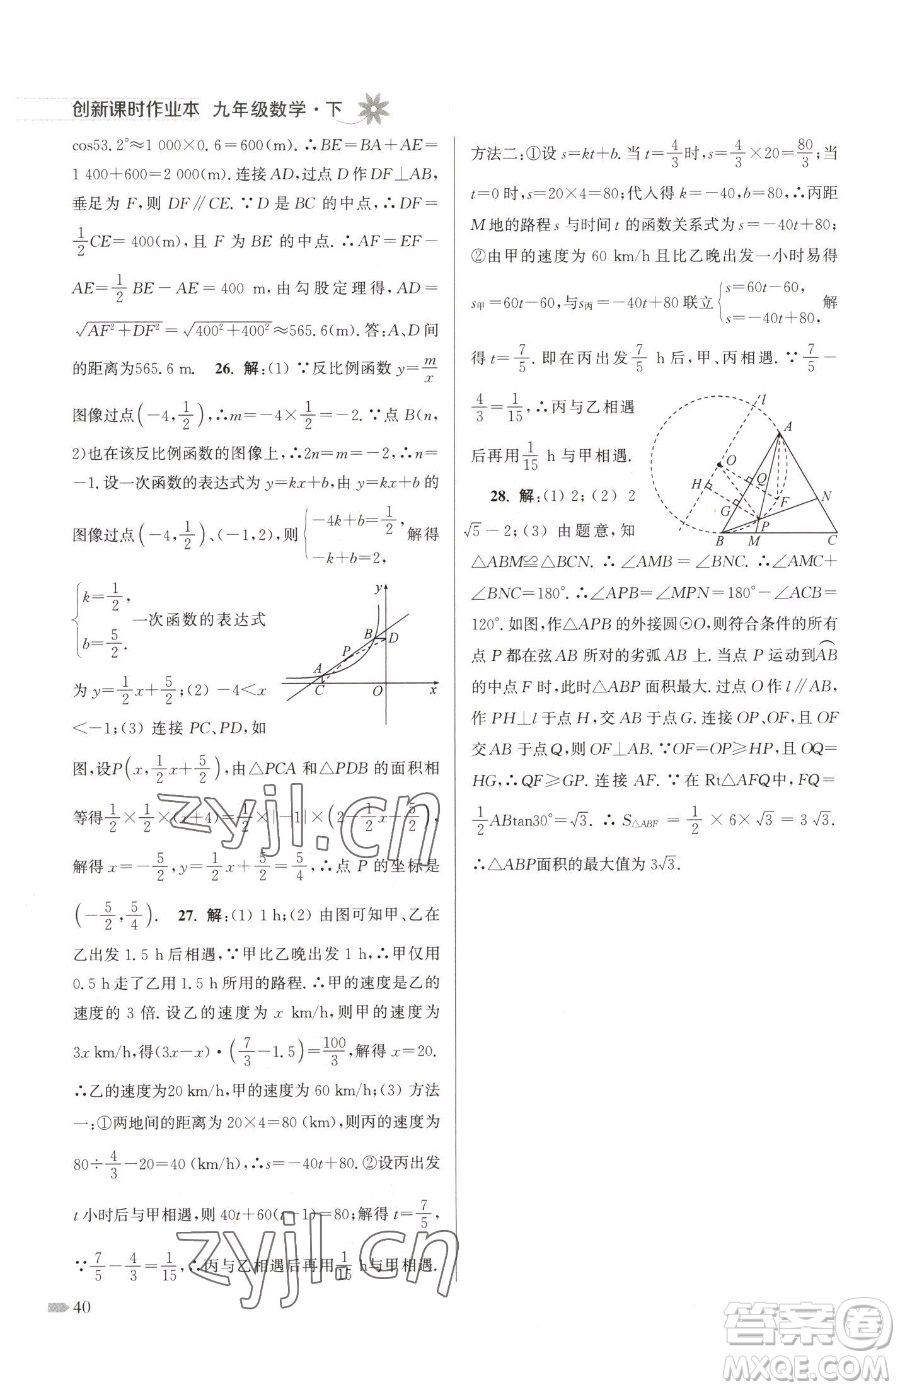 创新课时作业本 九年级数学·下
cos53.2°≈1 000×0.6=600(m).∴BE=BA+AE=
1 400+600=2 000(m).连接AD,过点D作DF⊥AB,
垂足为F,则DF∥CE.∵D是BC的中点,∴DF=
1/2CE=400(m),且F为BE的中点.∴AF=EF-
AE=1/2BE-AE=400 m,由勾股定理得,AD=
√(AF²+DF²)=√(400²+400²)≈565.6(m).答:A、D间
的距离为565.6 m. 26. 解:(1)∵反比例函数y=m/x
图像过点(-4,1/2),∴m=-4×1/2=-2.∵点B(n,
2)也在该反比例函数的图像上,∴2n=m=-2.∴n=
-1.设一次函数的表达式为y=kx+b,∵一次函数的
图像过点(-4,1/2)、(-1,2),则{-4k+b=1/2, -k+b=2, 解得
{k=1/2, b=5/2. 一次函数的表达式
为y=1/2x+5/2;(2)-4<x
<-1;(3)连接PC、PD,如
图,设P(x,1/2x+5/2).由△PCA和△PDB的面积相
等得1/2×1/2×(x+4)=1/2×|-1|×(2-1/2x-5/2),
解得x=-5/2,y=1/2x+5/2=5/4,∴点P的坐标是
(-5/2,5/4). 27. 解:(1)1 h;(2)由图可知甲、乙在
乙出发1.5 h后相遇,∵甲比乙晚出发1 h,∴甲仅用
0.5 h走了乙用1.5 h所用的路程.∴甲的速度是乙的
速度的3倍.设乙的速度为x km/h,则甲的速度为
3x km/h,得(3x-x)·(7/3-1.5)=100/3,解得x=20.
∴乙的速度为20 km/h,甲的速度为60 km/h;(3)方法
一:①两地间的距离为20×4=80(km),则丙的速度为
80÷4/3-20=40(km/h),∴s=-40t+80.②设丙出发
t小时后与甲相遇,则40t+60(t-1)=80;解得t=7/5,
∵7/5-4/3=1/15,∴丙与乙相遇后再用1/15 h与甲相遇.
40
方法二:①设s=kt+b.当t=4/3时,s=4/3×20=80/3;当
t=0时,s=20×4=80;代入得k=-40,b=80,∴丙距
M地的路程s与时间t的函数关系式为s=-40t+80;
②由甲的速度为60 km/h且比乙晚出发一小时易得
s甲=60t-60,与s丙=-40t+80联立{s=60t-60, s=-40t+80, 解
得t=7/5.即在丙出发7/5 h后,甲、丙相遇.∵7/5-
4/3=1/15,∴丙与乙相遇
后再用1/15 h与甲相遇.
28. 解:(1)2;(2)2
√5-2;(3)由题意,知
△ABM≌△BCN.∴∠AMB=∠BNC.∴∠AMC+
∠BNC=180°.∴∠APB=∠MPN=180°-∠ACB=
120°.如图,作△APB的外接圆⊙O,则符合条件的所有
点P都在弦AB所对的劣弧AB上.当点P运动到AB
的中点F时,此时△ABP面积最大.过点O作l∥AB,
作PH⊥l于点H,交AB于点G.连接OP、OF,且OF
交AB于点Q,则OF⊥AB.∵OF=OP≥HP,且OQ=
HG,∴QF≥GP.连接AF.∵在Rt△AFQ中,FQ=
1/2ABtan30°=√3.∴S△ABF=1/2×6×√3=3√3.
∴△ABP面积的最大值为3√3.
y
B
D
P
A
C
O
x
l
A
O
H
Q
F
N
G
P
B
M
C
zyjl.cn
zyjl.cn
答案圈
MXQE.COM